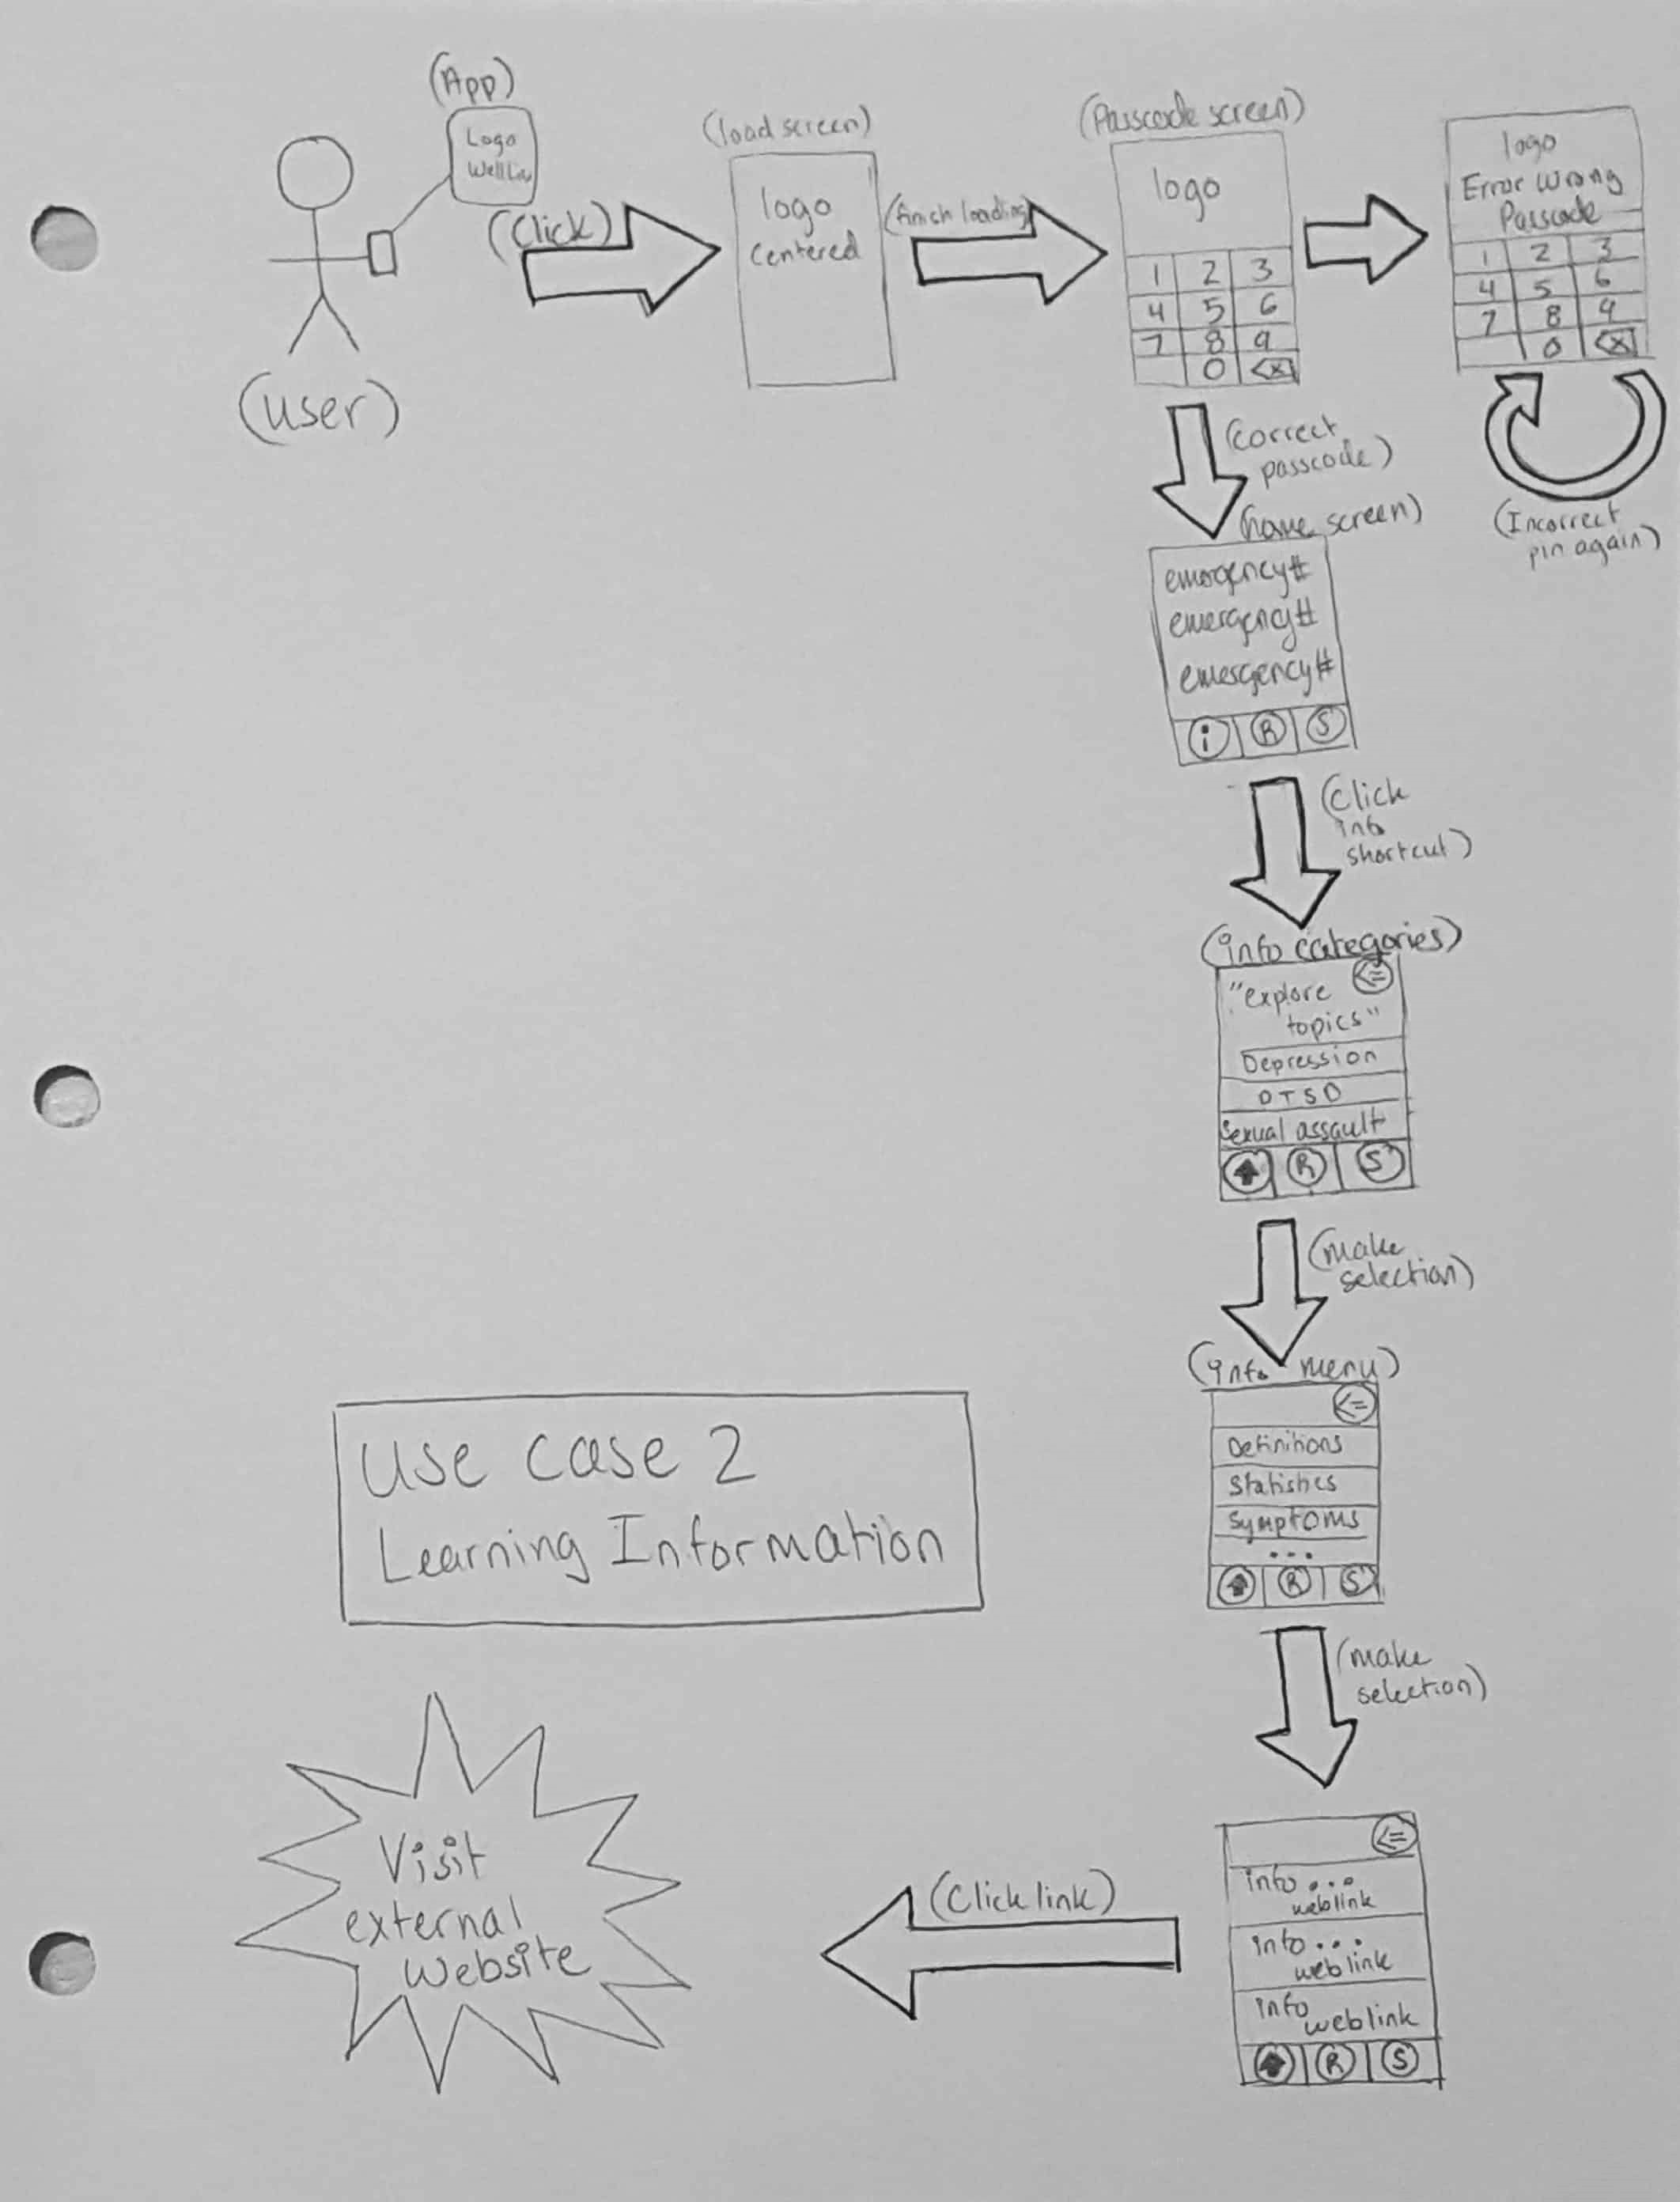 (App)
Logo
(user)
(Click)
(load screen)
logo
Centered
(finish loading)
(Passcode screen)
logo
1 2 3
4 5 6
7 8 9
0 <x
logo
Error Wrong
Passcode
1 2 3
4 5 6
7 8 9
0 <x
(Incorrect
pin again)
(correct
passcode)
(home screen)
emergency#
emergency#
emergency#
i R S
(Click
info
shortcut)
(info categories)
<=
"explore
topics"
Depression
PTSD
Sexual assault
R S
(make
selection)
(info menu)
<=
Definitions
Statistics
Symptoms
...
R S
(make
selection)
<=
info...
weblink
info...
weblink
info
weblink
R S
(Click link)
Visit
external
website
Use Case 2
Learning Information